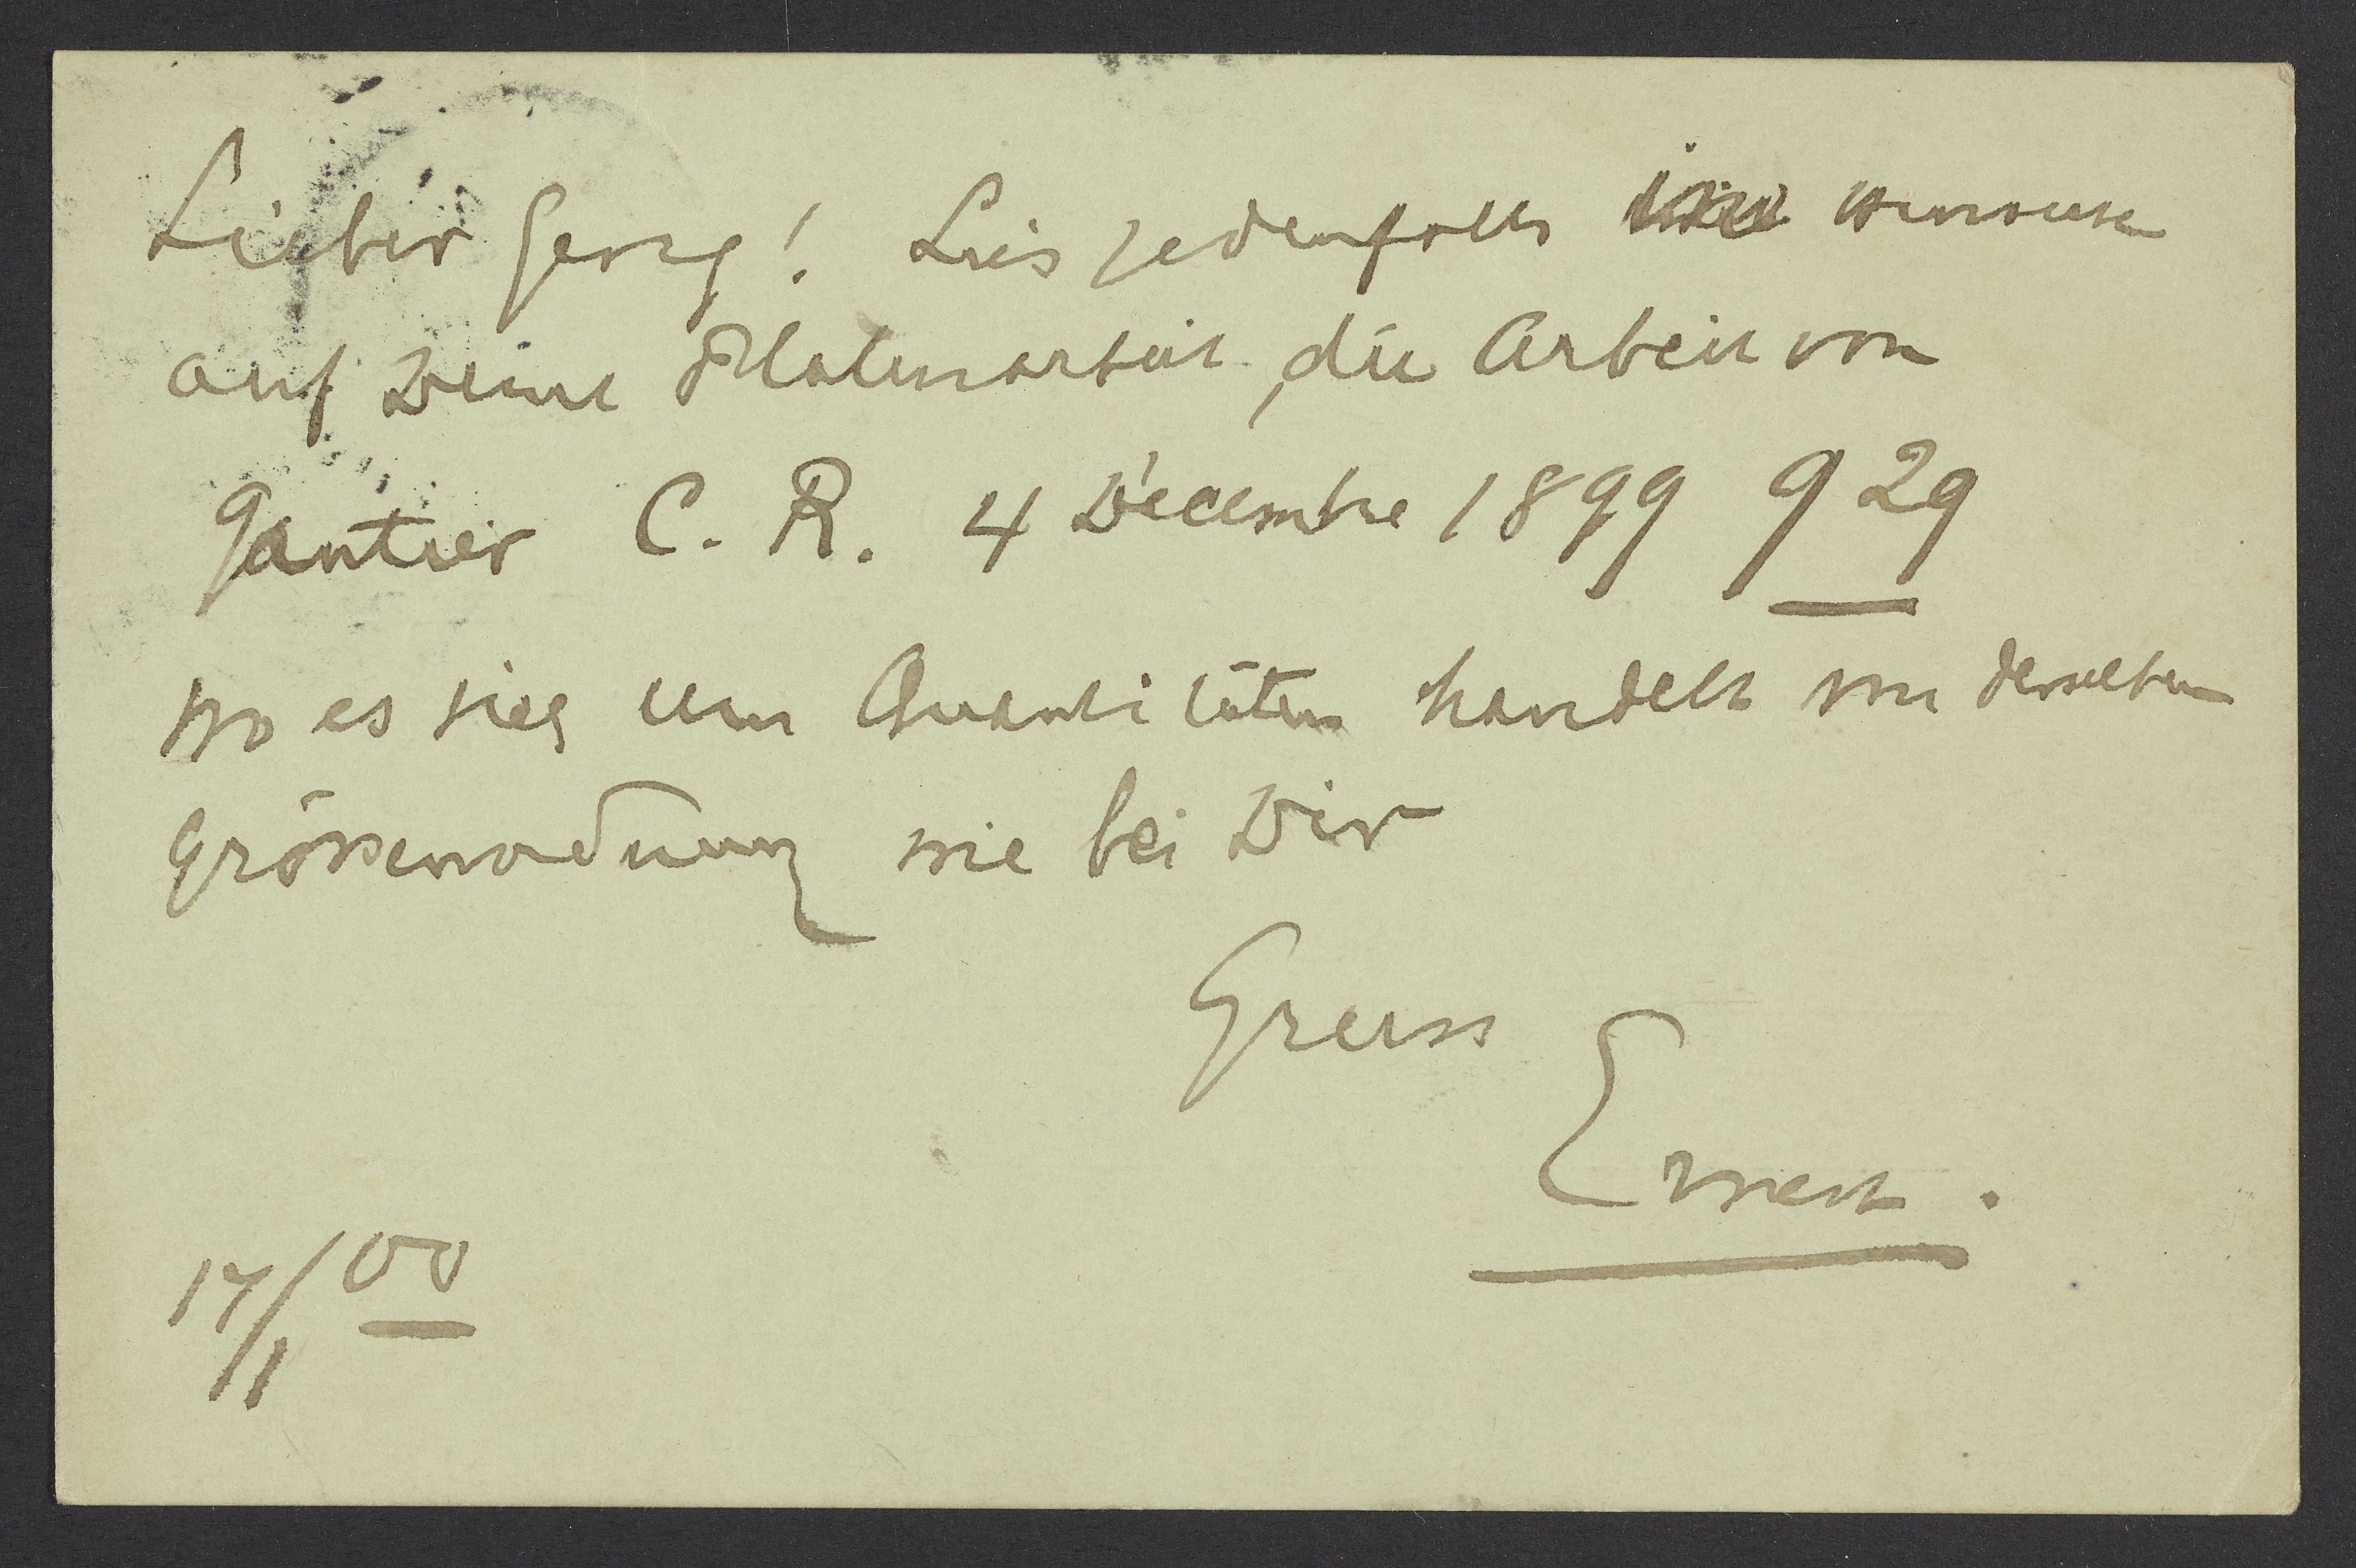 Lieber Georg! Lies jedenfalls
auf Deine Platinarbeit, die Arbeit von
Gautier C. R. 4 Décembre 1899 929
wo es sich um Quantitäten handelt von derselben
Grössenordnung wie bei Dir
Gruss
Ernest.
17/1 00